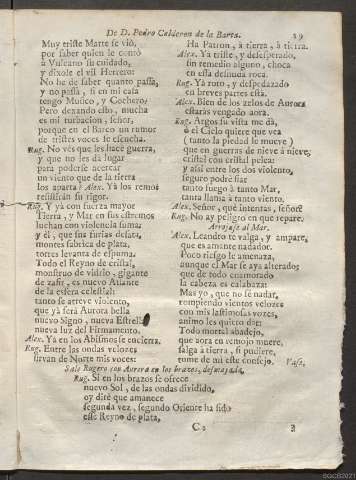 De D. Pedro Calderon de la Barca.
29
Muy triste Marte se viò,
por saber quien le contò
à Vulcano su cuidado,
y dixole el vil Herrero:
No he de saber quanto passa,
y no passa, si en mi casa
tengo Musico, y Cochero?
Pero dexando esto, mucha
es mi turbacion, señor,
porque en el Barco un rumor
de tristes voces se escucha.
Rug. No vès que les hace guerra,
y que no les dà lugar
para poderse acercar
un viento que de la tierra
los aparta? Alex. Yà los remos
resistiràn su rigor.
Rug. Y yà con fuerza mayor
Tierra, y Mar en sus estremos
luchan con violencia suma;
y èl, que sus furias desata,
montes fabrica de plata,
torres levanta de espuma.
Todo el Reyno de cristal,
monstruo de vidrio, gigante
de zafir, es nuevo Atlante
de la esfera celestial:
tanto se atreve violento,
que yà serà Aurora bella
nuevo Signo, nueva Estrella,
nueva luz del Firmamento.
Alex. Yà en los Abismos se encierra.
Rug. Entre las ondas veloces
sirvan de Norte mis voces:
Ha Patron, à tierra, à tierra.
Alex. Yà triste, y desesperado,
sin remedio alguno, choca
en essa desnuda roca.
Rug. Yà roto, y despedazado
en breves partes està.
Alex. Bien de los zelos de Aurora
estaràs vengado aora.
Rug. Argos su vista me dà,
ò el Cielo quiere que vea
(tanto la piedad le mueve)
que en guerras de nieve à nieve,
cristal con cristal pelea:
y assi entre los dos violento,
seguro podrè fiar
tanto fuego à tanto Mar,
tanta llama à tanto viento.
Alex. Señor, què intentas, señor?
Rug. No ay peligro en que repare.
Arrojase al Mar.
Alex. Leandro te valga, y ampare,
que es amante nadador.
Poco riesgo le amenaza,
aunque el Mar se aya alterado;
que de todo enamorado
la cabeza es calabaza:
Mas yo, que no sè nadar,
rompiendo vientos veloces
con mis lastimosas voces,
animo les quiero dar:
Todo mortal abadejo,
que aora en remojo muere,
salga à tierra, si pudiere,
tome de mi este consejo. Vase.
Sale Rugero con Aurora en los brazos, desmayada.
Rug. Si en los brazos se ofrece
nuevo Sol, de las ondas dividido,
oy dirè que amanece
segunda vez, segundo Oriente ha sido
este Reyno de plata,
C 2